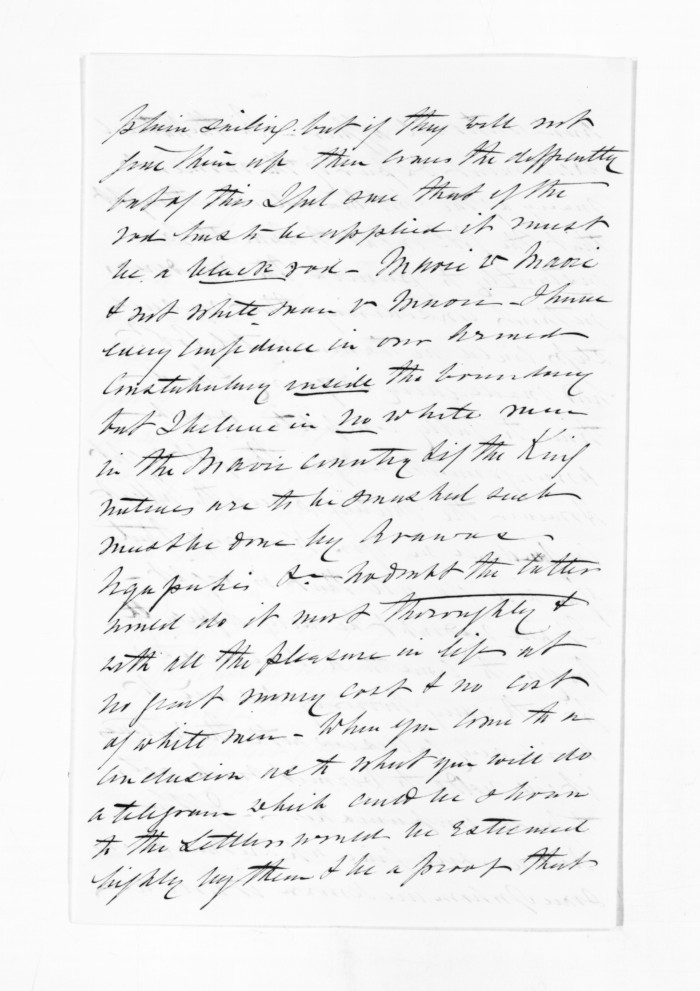 plain sailing. but if they will not
give them up then comes the difficulty
but of this I feel sure that if the
rod has to be applied it must
be a black rod - Maori v Maori
& not white man v Maori - I have
every confidence in our Armed
Constabulary inside the boundary
but I believe in no white man
in the Maori country & if the King
natives are to be smashed such
must be done by Arawas
Ngapuhis &c no doubt the latter
would do it most thoroughly &
with all the pleasure in life at
no great money cost & no cost
of white men - When you come to a
conclusion as to what you will do
a telegram which could be shown
to the Settlers would be Esteemed
highly by them & be a proof that